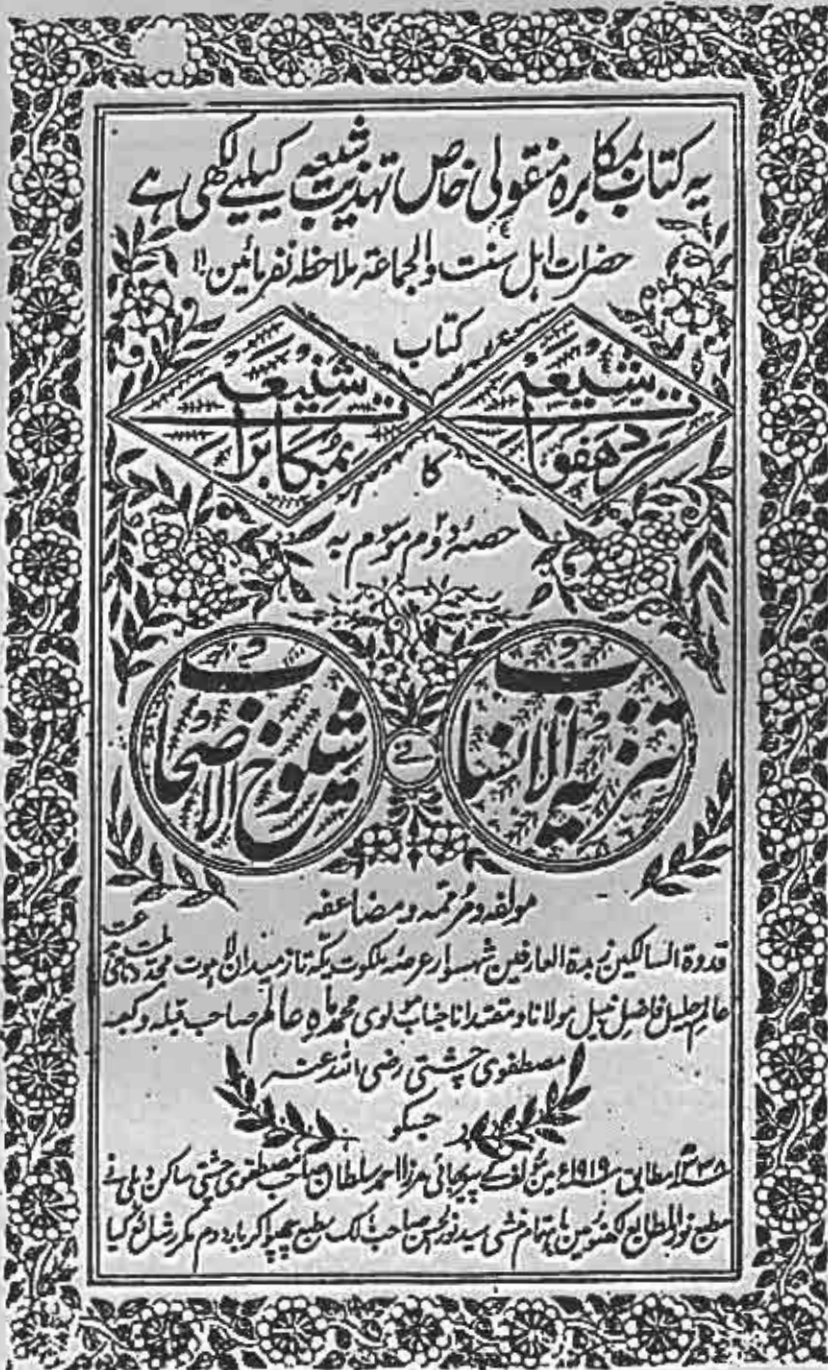 یہ کتاب بمکابرہ منقولی خاص تہذیب شیعہ کیلیے لکھی ہے
حضرات اہل سنت والجماعۃ ملاحظہ نفرمائین!!
کتاب
ردّ ہفوات شیعہ
بمکابرات شنیعہ
کا
حصۂ دوم موسوم بہ
تنزیہ الانساب
فے
شیوخ الاصحاب
مولفہ ومرممہ ومضاعفہ
قدوۃ السالکین زبدۃ العارفین شہسوار عرصہ ملکوت یکّہ تاز میدان لاہوت
عالم جلیل فاضل نبیل مولانا ومقتدانا جناب مولوی محمد ماہِ عالم صاحب قبلہ وکعبہ
مصطفوی چشتی رضی اللہ عنہ
جسکو
۱۳۳۸ھ مطابق ۱۹۱۹ء مین مؤلف کے پیربھائی مرزا احمد سلطان صاحب مصطفوی چشتی ساکن دہلی نے
مطبع نور المطابع لکھنؤ مین باہتمام منشی سید نور الحسن صاحب مالک مطبع چھپوا کر بار دوم مکرر شائع کیا